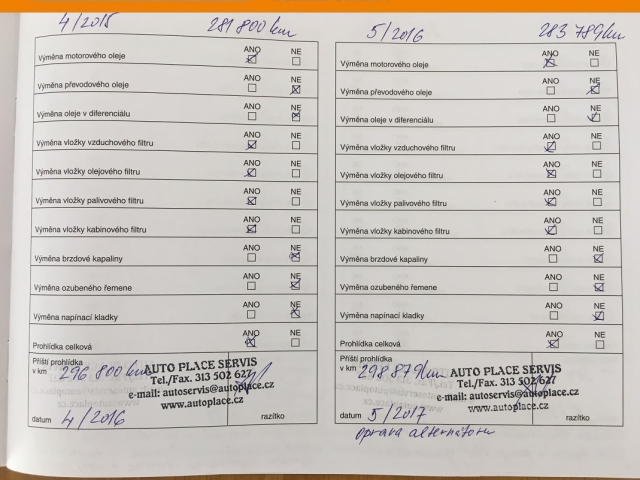 4/2015 281 800 km
ANO NE
Výměna motorového oleje
ANO NE
Výměna převodového oleje
ANO NE
Výměna oleje v diferenciálu
ANO NE
Výměna vložky vzduchového filtru
ANO NE
Výměna vložky olejového filtru
ANO NE
Výměna vložky palivového filtru
ANO NE
Výměna vložky kabinového filtru
ANO NE
Výměna brzdové kapaliny
ANO NE
Výměna ozubeného řemene
ANO NE
Výměna napínací kladky
ANO NE
Prohlídka celková
Příští prohlídka
v km 296 800 km
AUTO PLACE SERVIS
Tel./Fax. 313 502 627
e-mail: autoservis@autoplace.cz
www.autoplace.cz
datum 4/2016 razítko
5/2016 283 789 km
ANO NE
Výměna motorového oleje
ANO NE
Výměna převodového oleje
ANO NE
Výměna oleje v diferenciálu
ANO NE
Výměna vložky vzduchového filtru
ANO NE
Výměna vložky olejového filtru
ANO NE
Výměna vložky palivového filtru
ANO NE
Výměna vložky kabinového filtru
ANO NE
Výměna brzdové kapaliny
ANO NE
Výměna ozubeného řemene
ANO NE
Výměna napínací kladky
ANO NE
Prohlídka celková
Příští prohlídka
v km 298 879 km
AUTO PLACE SERVIS
Tel./Fax. 313 502 627
e-mail: autoservis@autoplace.cz
www.autoplace.cz
datum 5/2017 razítko
oprava alternátoru